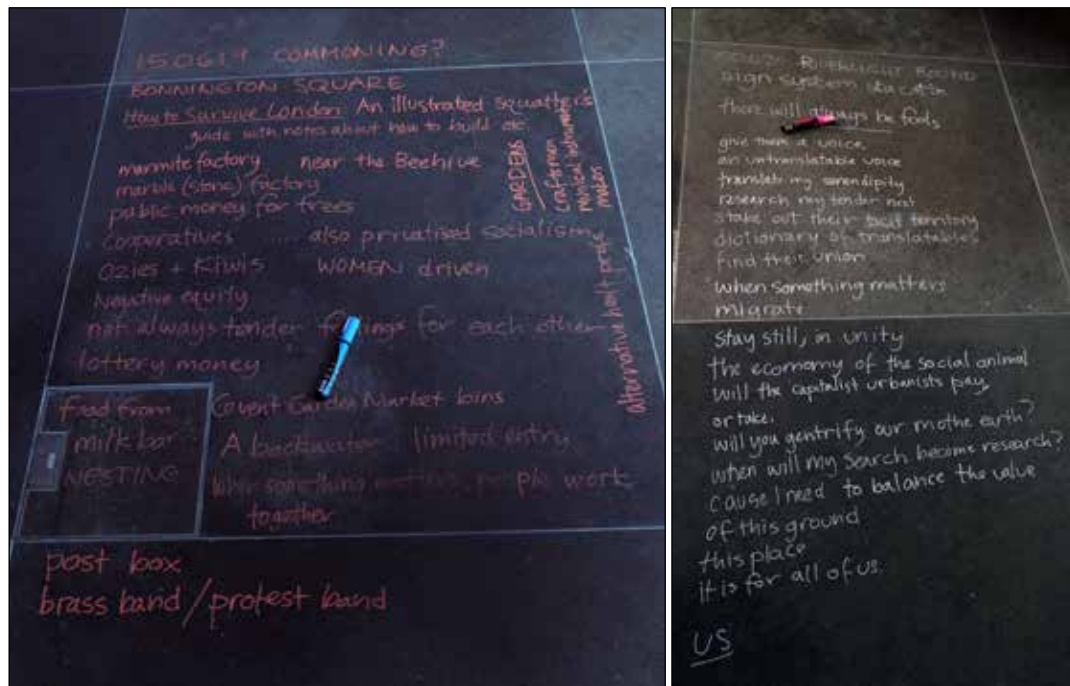 150619 COMMONING?
BONNINGTON SQUARE
How to Survive London An illustrated squatter's
guide with notes about how to build etc
marmite factory near the Beehive
marble (stone) factory
public money for trees
cooperatives ..... also privatised socialism
Ozies + Kiwis WOMEN driven
Negative equity
not always tender feelings for each other
lottery money
GARDENS
craftsmen
musical instrument
maker
alternative health
food from
milk bar
NESTING
Covent Garden Market bins
A backwater limited entry
When something matters, people work
together
post box
brass band / protest band
RIVERLIGHT BOUND
sign system
there will always be fools
give them a voice
an untranslatable voice
translate my serendipity
research my tender nest
stake out their tacit territory
dictionary of translatables
find their union
when something matters
migrate
stay still, in unity
the economy of the social animal
will the capitalist urbanists pay
or take.
will you gentrify our mothe earth?
when will my search become research?
cause I need to balance the value
of this ground
this place
it is for all of us.
US